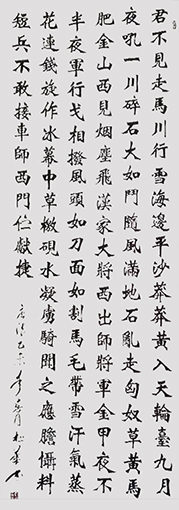 君不見走馬川行雪海邊平沙莽莽黃入天輪臺九月
夜吼一川碎石大如鬥隨風滿地石亂走匈奴草黃馬
肥金山西見烟塵飛漢家大將西出師將軍金甲夜不
半夜軍行戈相撥風頭如刀面如割馬毛帶雪汗氣蒸
花連錢旋作冰幕中草檄硯水凝虜騎聞之應膽懾料
短兵不敢接車師西門伫獻捷
唐詩乙未年月松